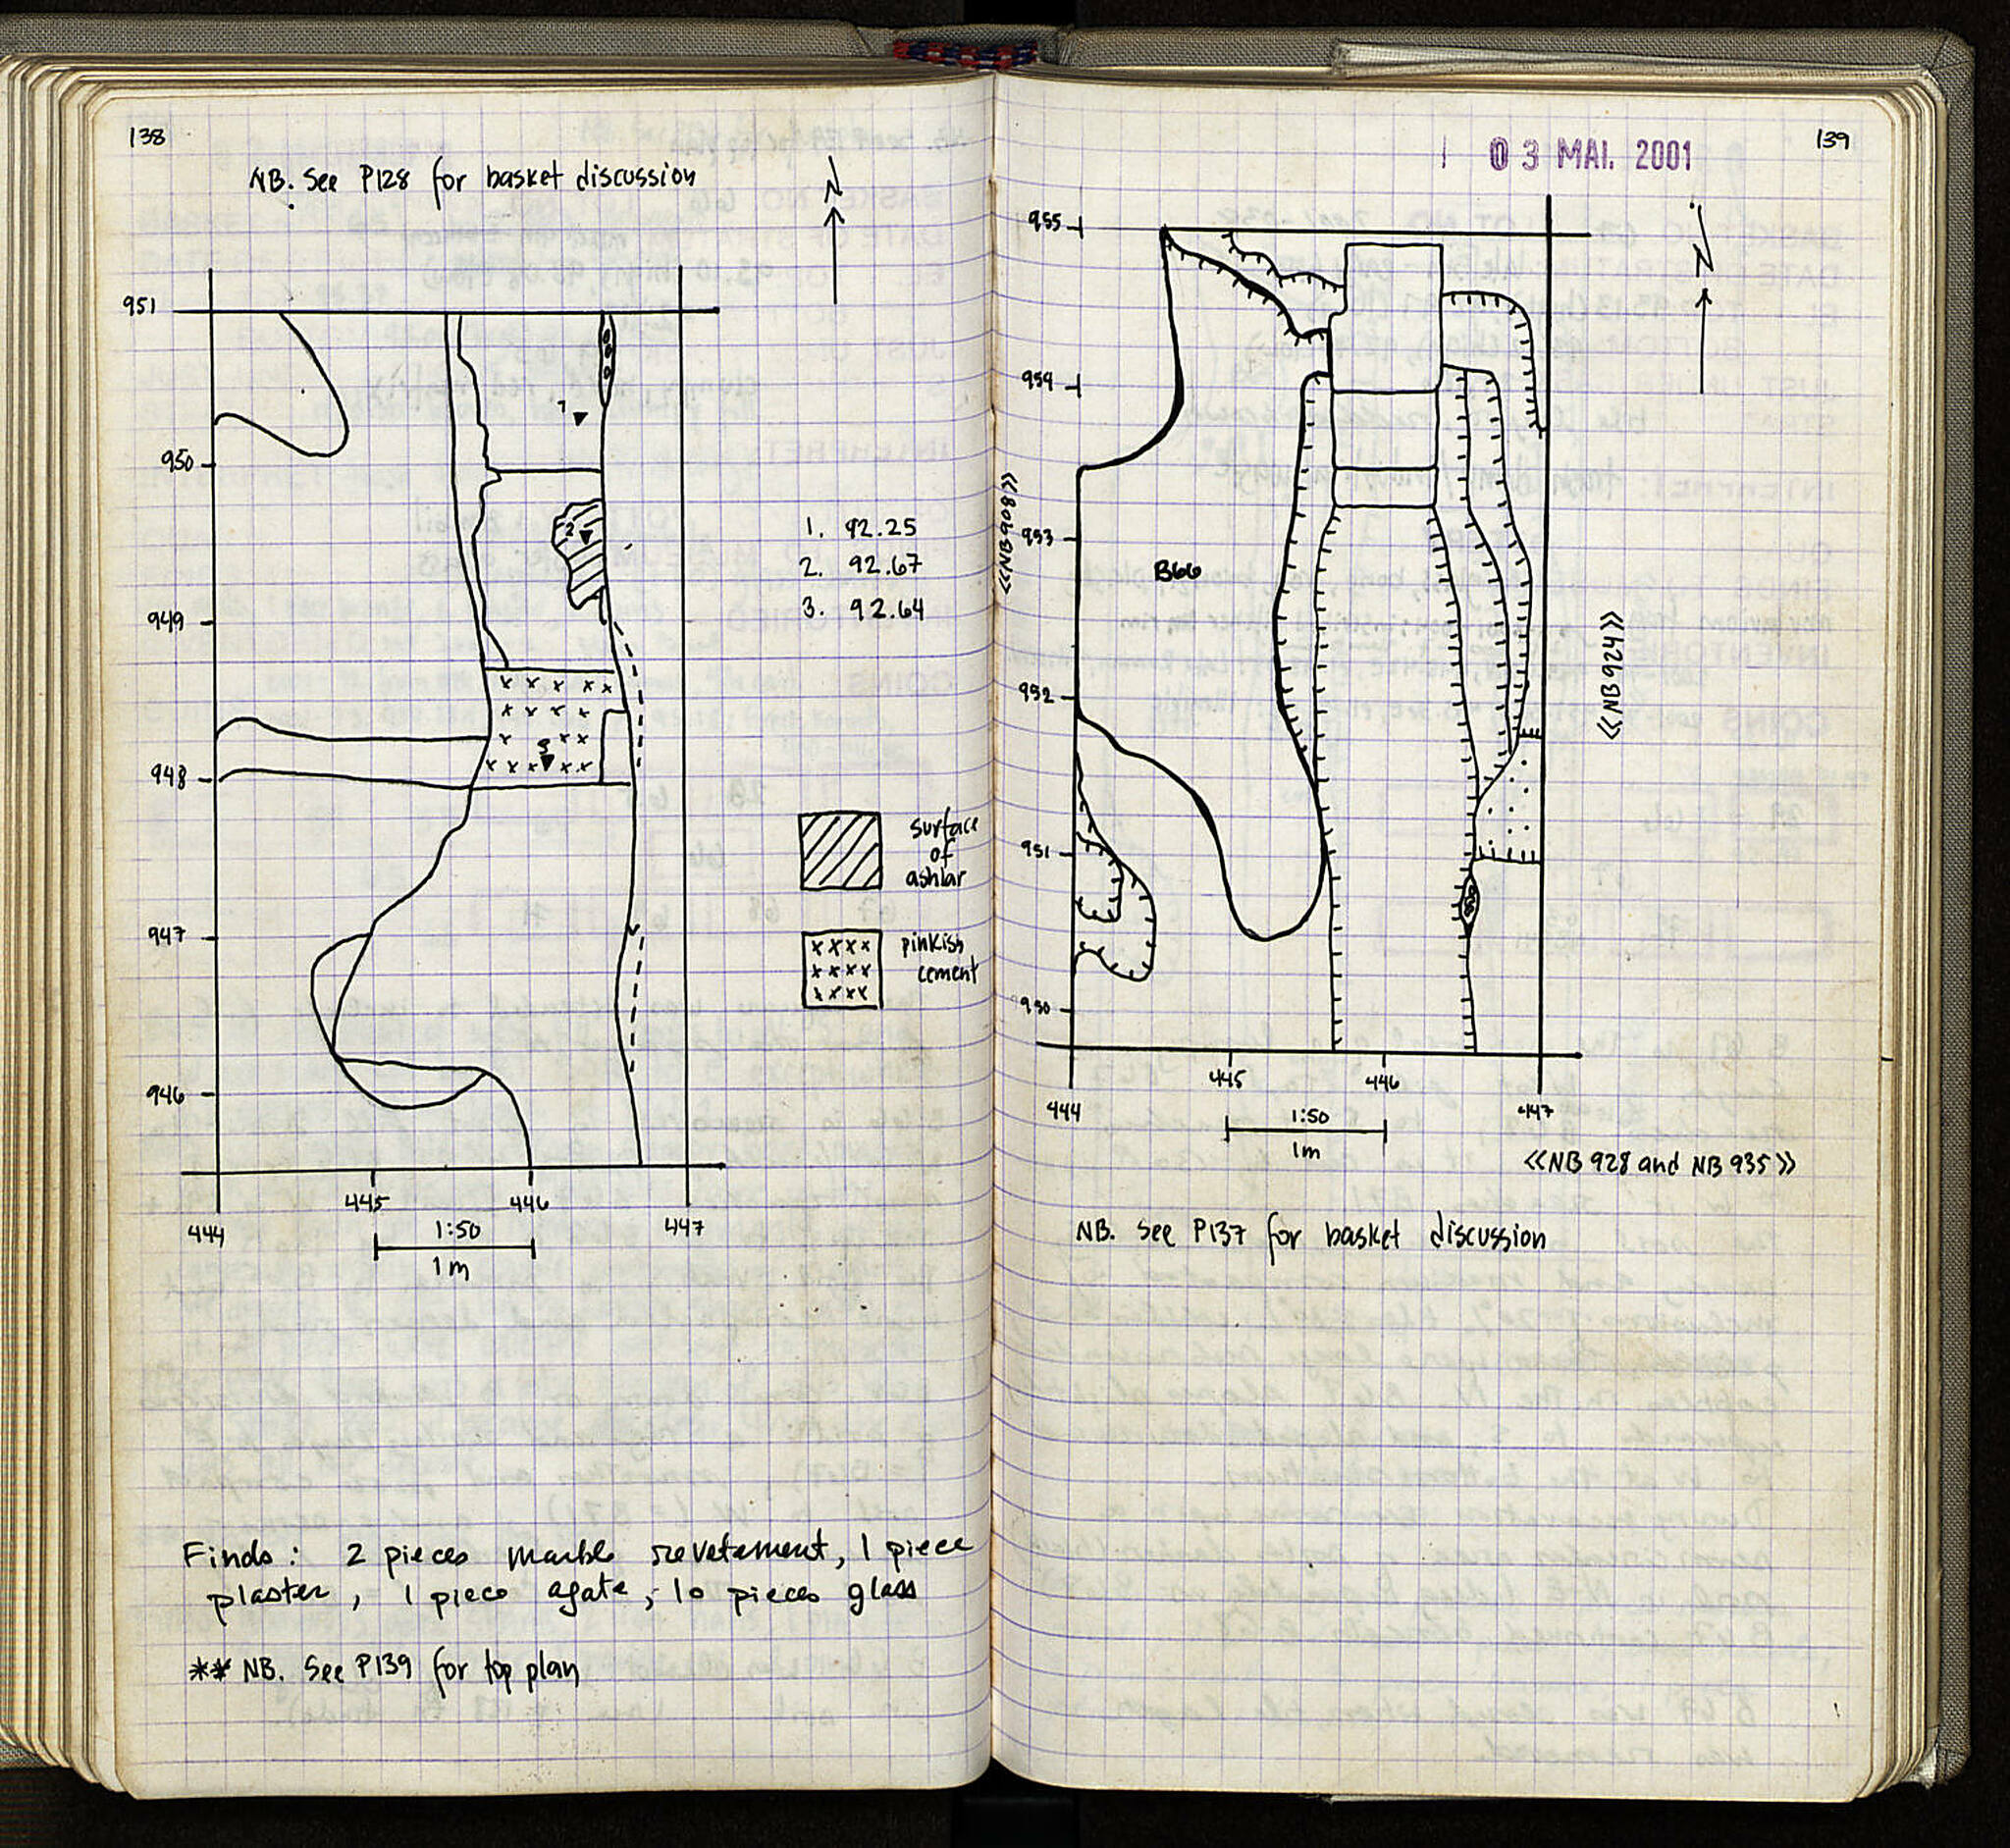 138
NB. See P128 for basket discussion
N
951
950
949
948
947
946
1
2
3
1. 92.25
2. 92.67
3. 92.64
surface
of
ashlar
pinkish
cement
444
445
446
447
1:50
1m
Finds: 2 pieces marble revetement, 1 piece
plaster, 1 piece agate, 10 pieces glass
** NB. See P139 for top plan
139
03 MAI 2001
N
955
954
953
952
951
950
<<NB908>>
B66
<<NB924>>
444
445
446
447
1:50
1m
<<NB 928 and NB 935>>
NB. See P137 for basket discussion